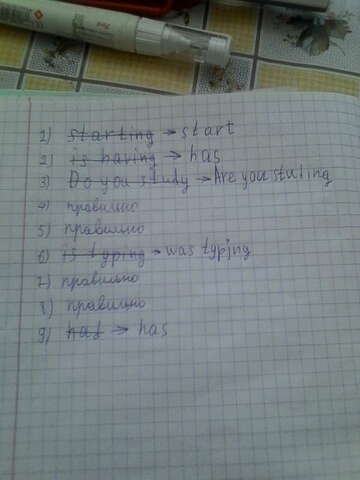 1) starting → start
2) is having → has
3) Do you study → Are you stuling
4) правильно
5) правильно
6) is typing → was typing
7) правильно
8) правильно
9) hat → has